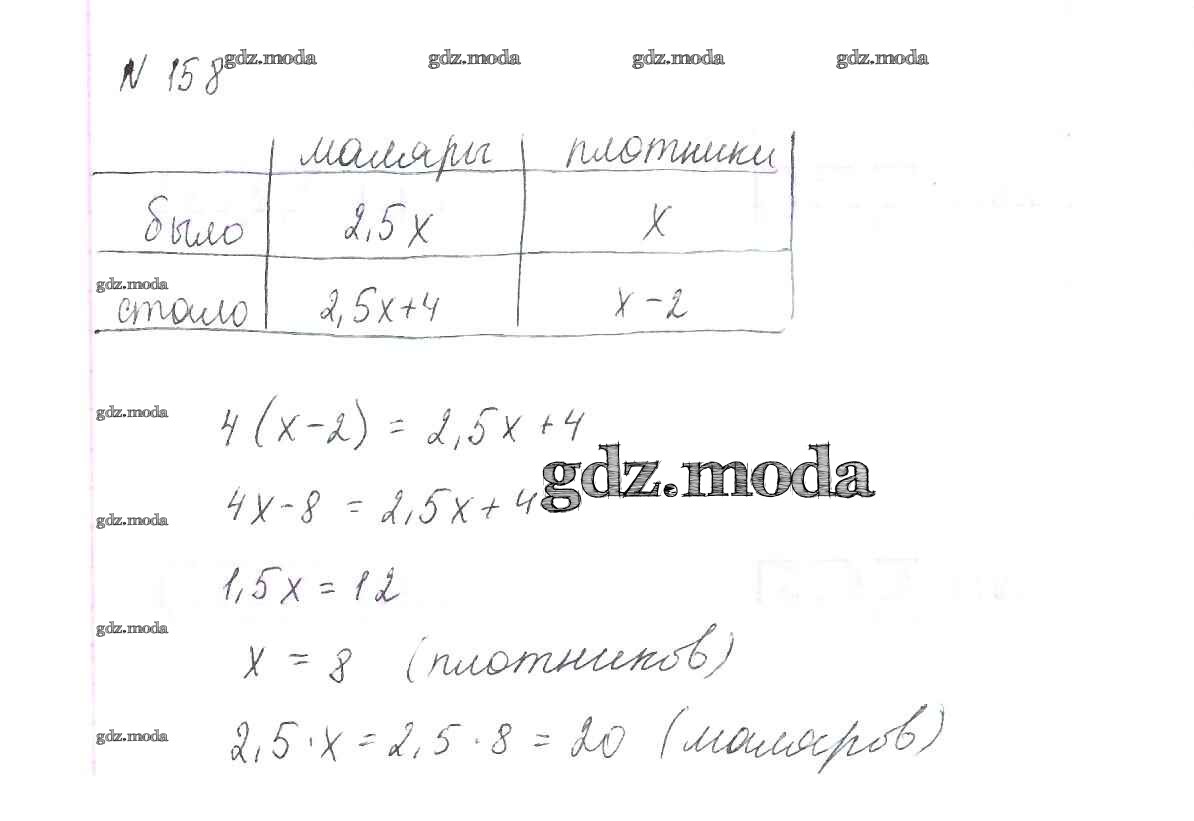 N 158 gdz.moda gdz.moda gdz.moda gdz.moda
маляры плотники
было 2,5x x
gdz.moda
стало 2,5x+4 x-2
gdz.moda
4(x-2) = 2,5x+4
gdz.moda
4x-8 = 2,5x+4
gdz.moda
1,5x=12
gdz.moda
x = 8 (плотников)
gdz.moda
2,5·x=2,5·8=20 (маляров)